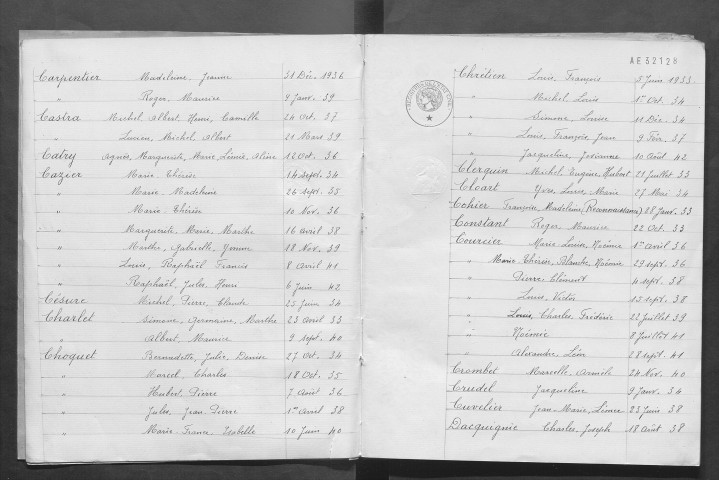 Carpentier Madeleine, Jeanine 31 Déc. 1936
" Roger, Maurice 9 Janv. 39
Castra Michel Albert Henri, Camille 24 Oct. 37
" Lucien, Michel Albert 21 Mars 39
Catry Agnès, Marguerite, Marie, Aline 12 Oct. 36
Cazier Marie Thérèse 14 Sept. 34
" Marie Madeleine 26 Sept. 35
" Marie Thérèse 10 Nov. 36
" Marguerite Marie, Marthe 16 avril 38
" Marthe, Gabrielle, Yvonne 18 Nov. 39
" Louis, Raphaël Francis 8 avril 41
" Raphaël, Jules, Henri 6 Juin 42
Césure Michel, Pierre, Claude 25 Juin 34
Charlet Simone, Germaine, Marthe 23 avril 33
" Albert, Maurice 9 Sept. 40
Choquet Bernadette, Julie, Denise 27 Oct. 34
" Marcel, Charles 18 Oct. 35
" Hubert, Pierre 7 Août 36
" Jules, Jean, Pierre 1er avril 38
" Marie France, Isabelle 10 Juin 40
AE32128
Chrétien Louis, François 5 Juin 1933
" Michel, Louis 1er Oct. 34
" Simone, Louise 11 Déc. 34
" Louis, François, Jean 9 Fév. 37
" Jacqueline, 10 Août 42
Clerquin Michel Eugène, Hubert 21 Juillet 33
Cloart Yves, Marie 27 Mai 34
Cohier Françoise, Madeleine, 28 Janv. 33
Constant Roger, Maurice 22 Oct. 33
Courcier Marie Louise, Noémie 1er avril 36
" Marie Thérèse, Blanche, Noémie 29 Sept. 36
" Pierre Clément 4 Sept. 38
" Louis, Victor 13 Sept. 38
" Louis, Charles, Frédéric 22 Juillet 39
" Noémie 8 Juillet 41
" Alexandre, Léon 28 Sept. 41
Crombet Marcelle, 24 Nov. 40
Crudel Jacqueline 9 Janv. 34
Cuvelier Jean-Marie, 23 Juin 38
Dacquignie Charles, Joseph 18 Août 38